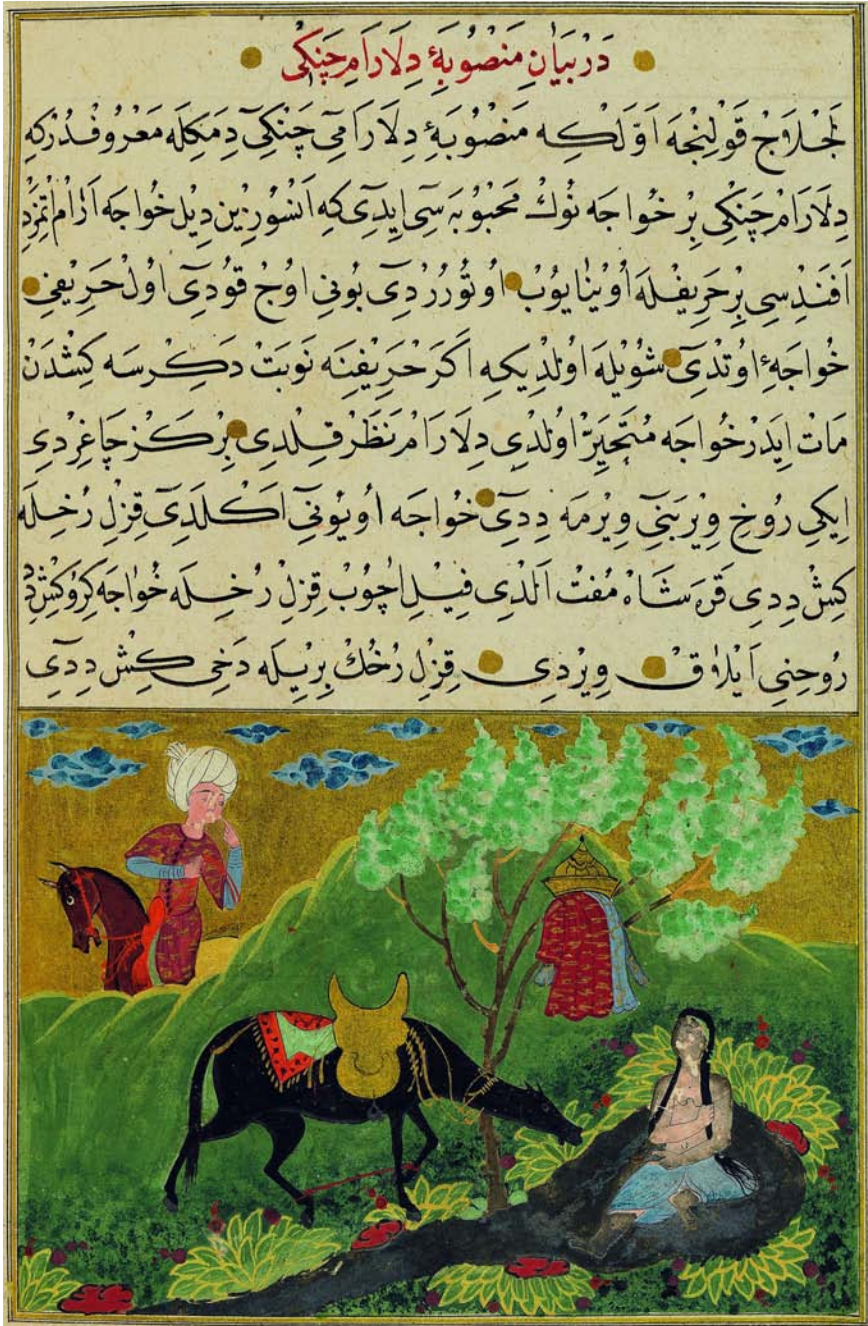 دَرْ بَيَانِ مَنْصُوبَهٔ دِلَارَامِ چَنْكِی
لَجْلَاجْ قَوْلِنْجَه اَوَّلْكِه مَنْصُوبَهٔ دِلَارَامِی چَنْكِی دِمَكِلَه مَعْرُوفْدُرْكِه
دِلَارَامْ چَنْكِی بِرْ خُواجَه نُوكْ مَحْبُوبَه سِی اِیدِی كِه اَنْسُوزِینْ دِیلْ خُواجَه آرَامْ اِتْمَزْدِ
اَفَنْدِسِی بِرْ حَرِیفْلَه اُویْنَایُوبْ اُوتُورُرْدِی بُونِی اُوجْ قُودِی اُولْ حَرِیفِی
خُواجَهٔ اُوتْدِی شُویْلَه اُولْدِیكِه اَكَرْ حَرِیفِنَه نَوبَتْ دَكِرْسَه كِشْدَنْ
مَاتْ اِیدَرْ خُواجَه مُتَحَیِّرْ اُولْدِی دِلَارَامْ نَظَرْ قِلْدِی بِرْكَزْ چَاغِرْدِی
اِیكِی رُوخِ وِیرْ بَنِی وِیرْمَه دِدِی خُواجَه اُویُونِی اَكْلَدِی قِزِلْ رُخِلَه
كِشْ دِدِی قَرَه شَاهْ مُفْتْ اَلْدِی فِیلِ اَچُوبْ قِزِلْ رُخِلَه خُواجَه كِرُو كِشْ دِ
رُوحِنِی اَیْلَاقْ وِیرْدِی قِزِلْ رُخُكْ بِرِیلَه دَخِی كِشْ دِدِی